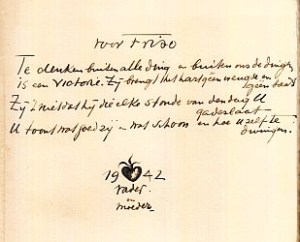 voor Friso
Te denken buiten alle ding en buiten ons de dingen
is een victorie. Zij brengt het hart geen vreugde en
geen
Zij is die elke stonde van den dag U
gadeslaat
U toont wat goed zij en wat schoon en hoe U zelf te
dwingen.
1942
vader
en
moeder